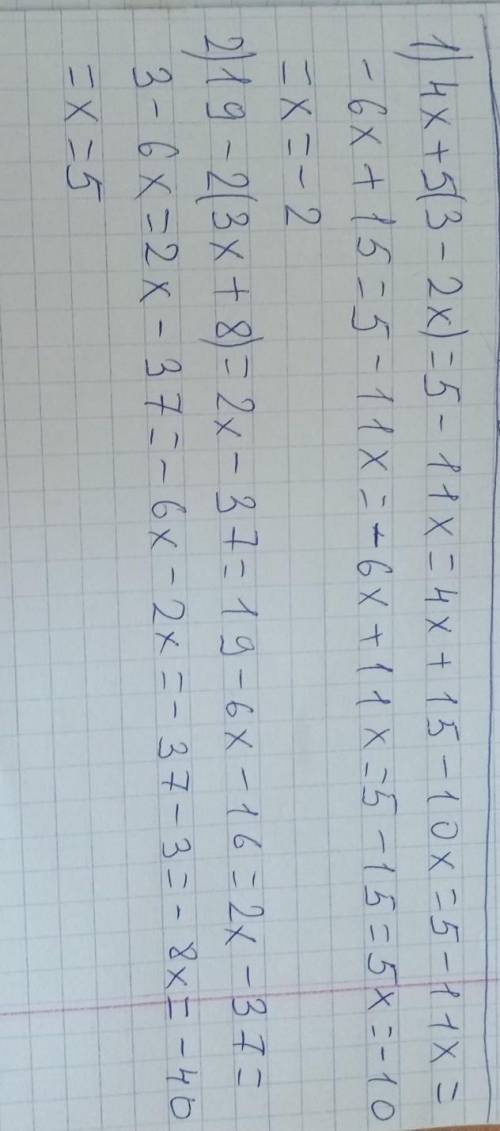 1) 4x + 5(3 - 2x) = 5 - 11x = 4x + 15 - 10x = 5 - 11x =
- 6x + 15 = 5 - 11x = - 6x + 11x = 5 - 15 = 5x = -10
= x = - 2
2) 19 - 2(3x + 8) = 2x - 37 = 19 - 6x - 16 = 2x - 37 =
3 - 6x = 2x - 37 = - 6x - 2x = - 37 - 3 = - 8x = - 40
= x = 5